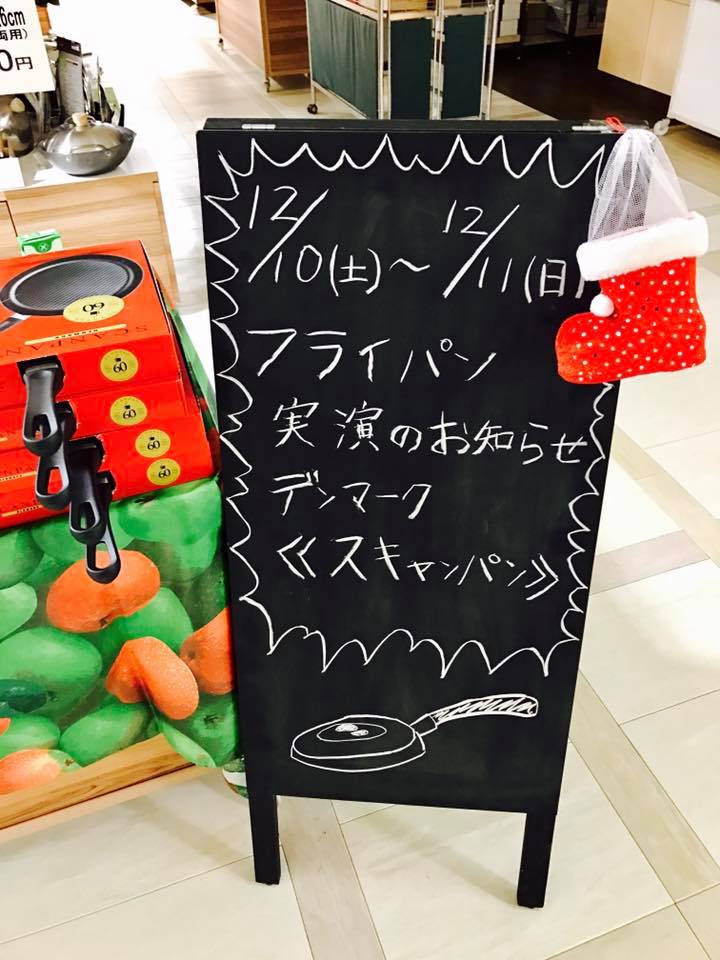 6cm
両用)
0円
12/10(土)～12/11(日)
フライパン
実演のお知らせ
デンマーク
≪スキャンパン≫
SCANPAN
60
60
60
60
60